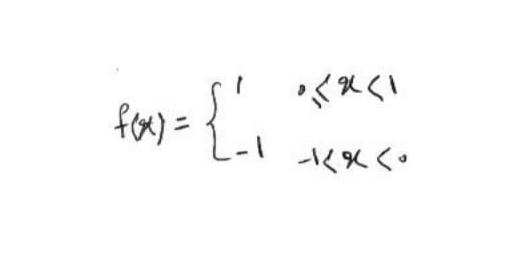 f(x) = { 1 0 ≤ x < 1
-1 -1 < x < 0